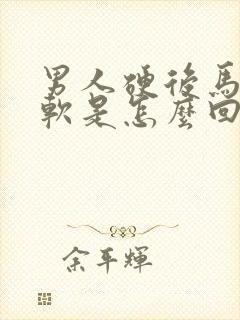 男人硬後馬
軟是怎麼回
余平輝